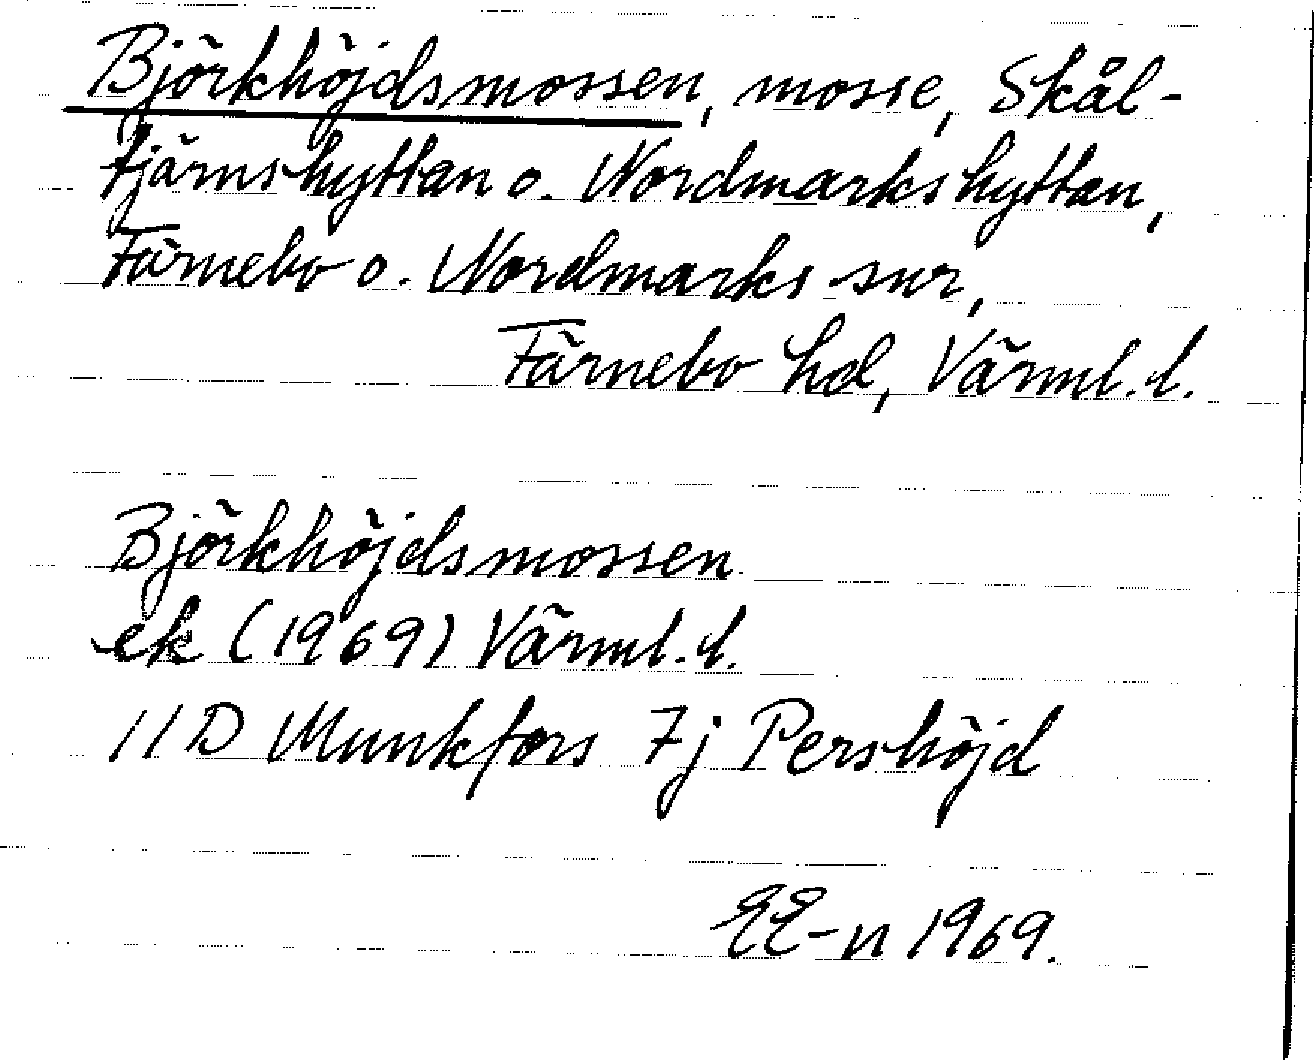 Björkhöjdsmossen, mosse, Skål-
tjärnshyttan o. Nordmarkshyttan,
Färnebo o. Nordmarks snr,
Färnebo hd, Värml. l.
Björkhöjdsmossen
ek (1969) Värml. l.
11D Munkfors 7j Pershöjd
EE-n 1969.